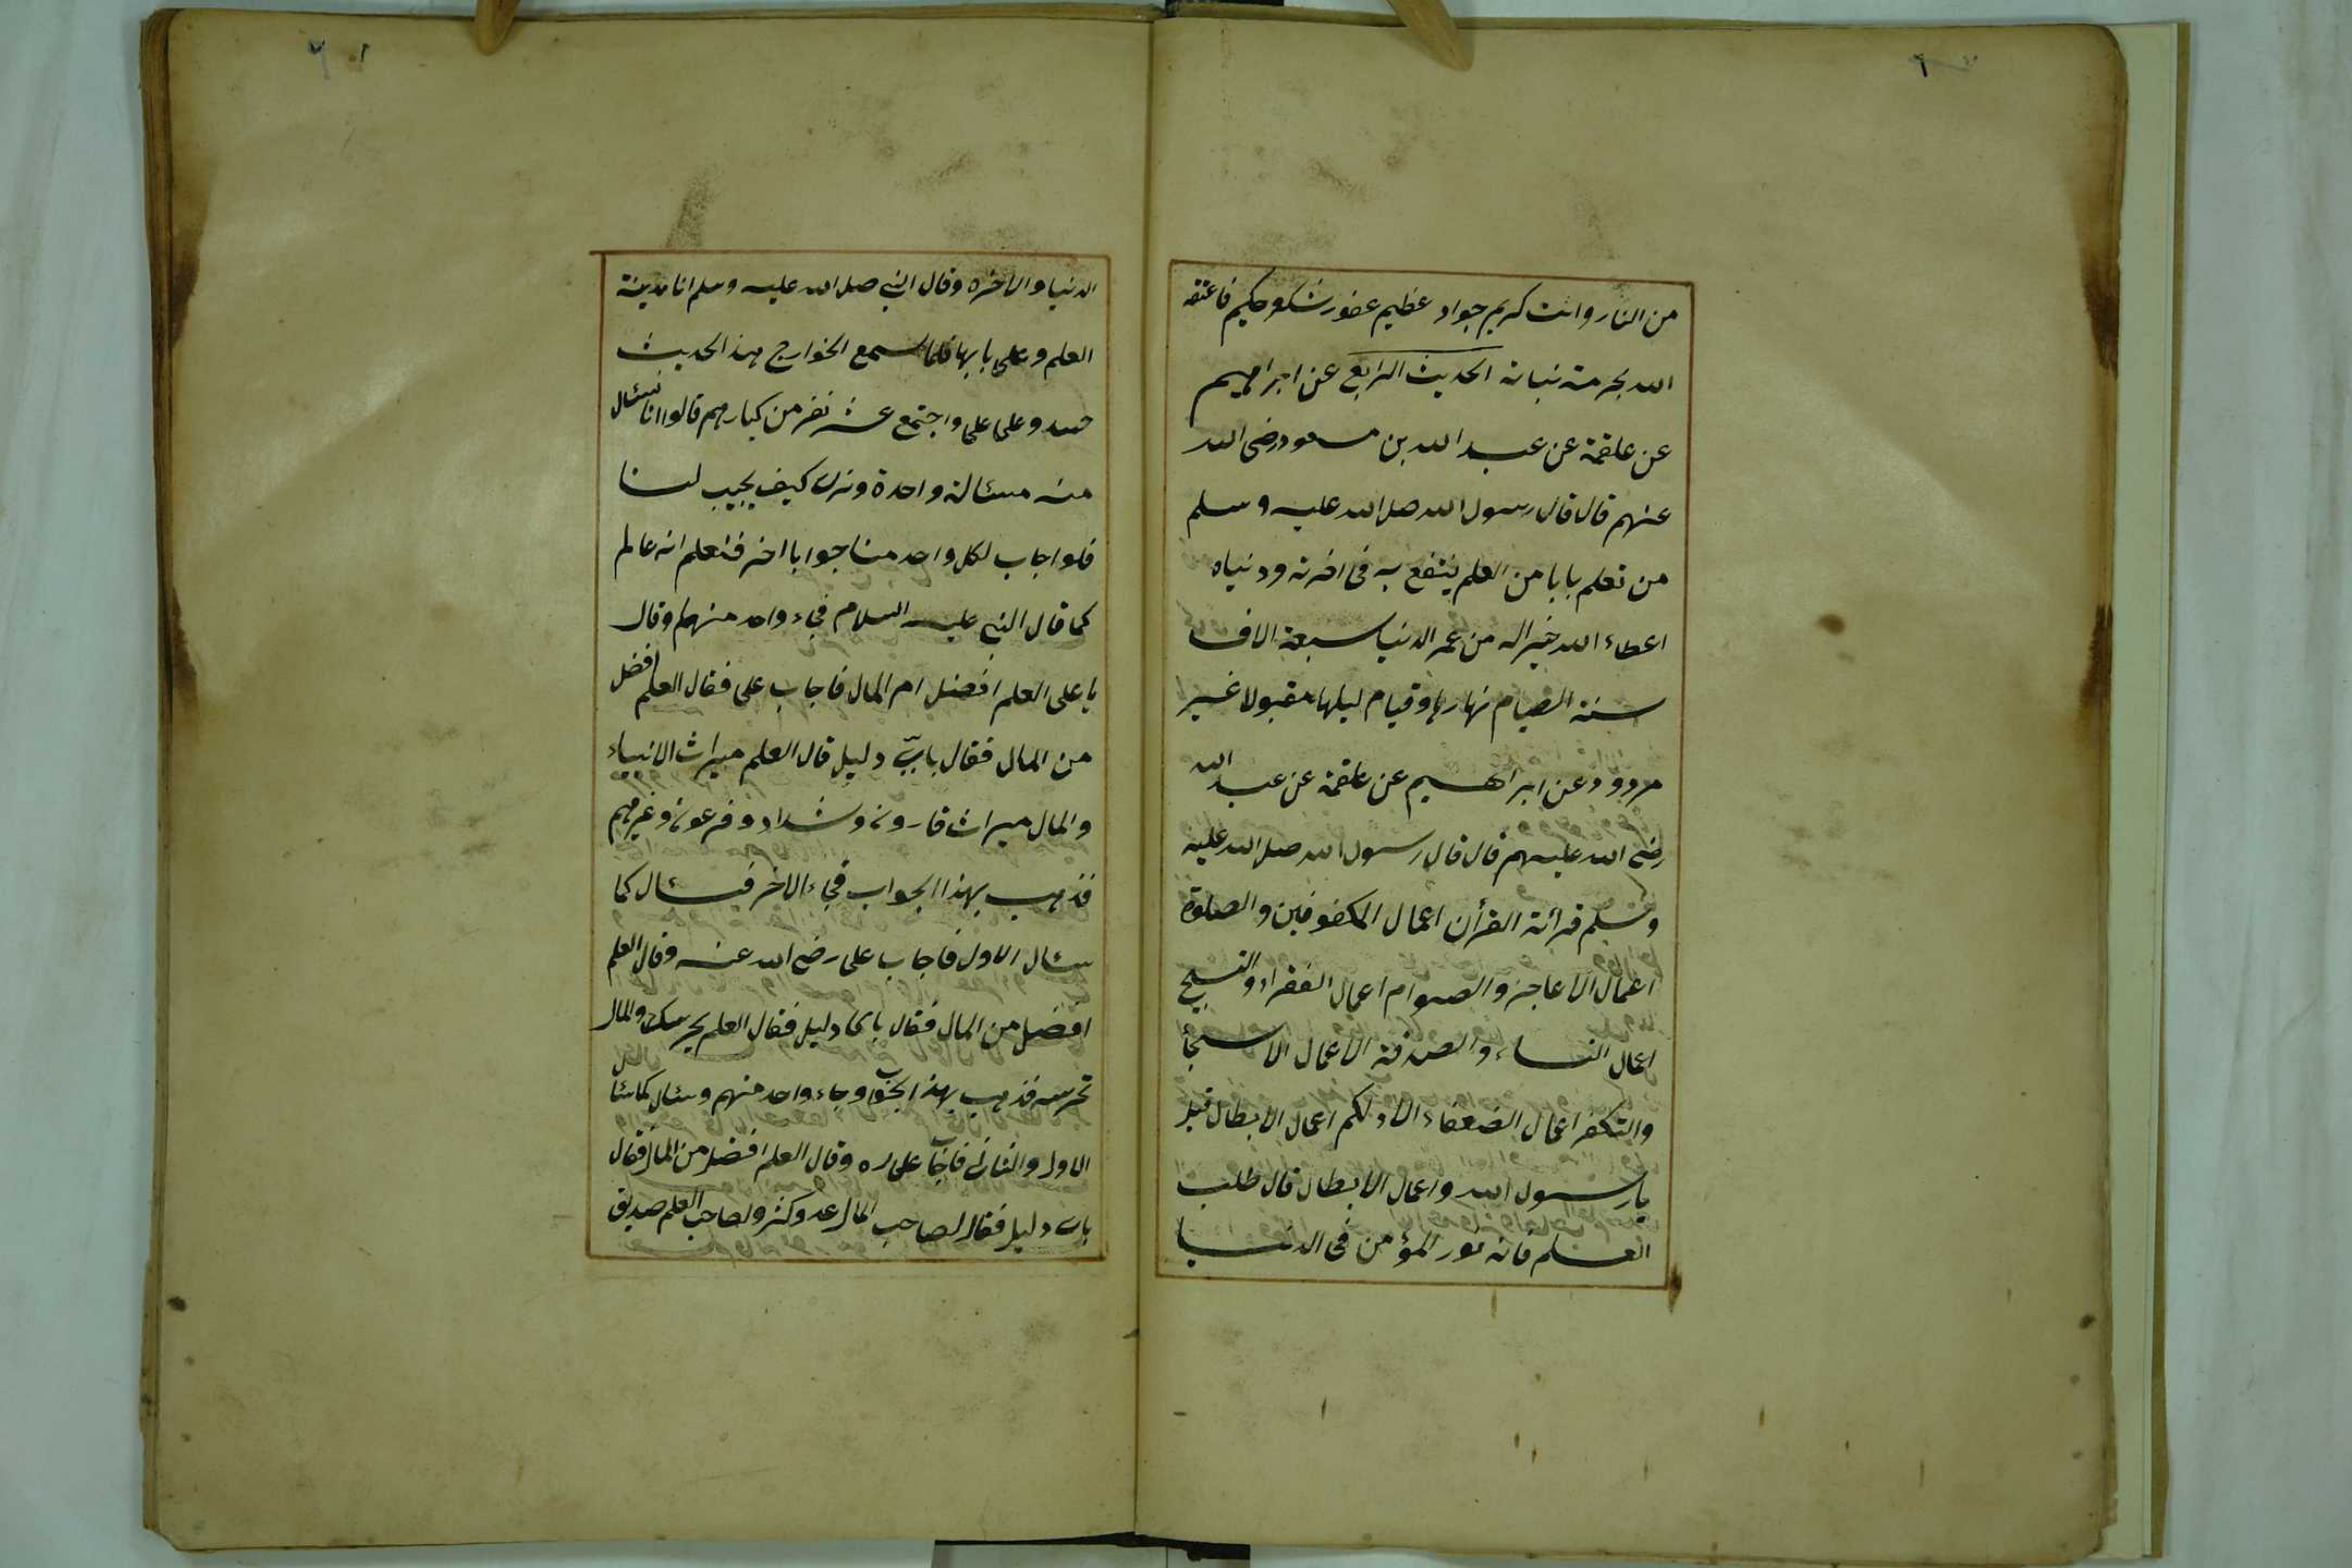 من النار وانت كريم جواد عظيم غفور شكور حكيم فاعتقه
الله بحرمة نباته الحديث الرابع عن ابراهيم
عن علقمة عن عبد الله بن مسعود رضى الله
عنهم قال قال رسول الله صلى الله عليه وسلم
من تعلم بابا من العلم ينتفع به فى اخرته ودنياه
اعطاء الله خير اله من عمر الدنيا سبعة الاف
سنة الصيام نهارها وقيام ليلها مقبولا غير
مردود وعن ابراهيم عن علقمة عن عبد الله
رضى الله عليهم قال قال رسول الله صلى الله عليه
وسلم قرائة القرأن اعمال المكفوفين والصلوة
اعمال الاعاجز والصوام اعمال الفقراء والتسبيح
اعمال النساء والصدقة الاعمال الاسخيأ
والتكفر اعمال الضعفاء الا ادلكم اعمال الابطال قيل
يا رسول الله واعمال الابطال قال طلب
العلم فانه نور المؤمن فى الدنيا
الدنيا والاخره وقال النبى صلى الله عليه وسلم انا مدينة
العلم وعلى بابها فلما سمع الخوارج هذا الحديث
حسدوا على على واجتمع عشر نفر من كبارهم قالوا انا نسئال
منه مسئالة واحدة ونرى كيف يجيب لنا
فلو اجاب لكل واحد منا جوابا اخر فنعلم انه عالم
كما قال النبى عليه السلام فجاء واحد منهم وقال
يا على العلم افضل ام المال فاجاب على فقال العلم افضل
من المال فقال بأىّ دليل قال العلم ميراث الانبياء
والمال ميراث قارون وشداد وفرعون وغيرهم
فذهب بهذا الجواب فجاء الاخر فسئال كما
سئال الاول فاجاب على رضى الله عنه وقال العلم
افضل من المال فقال باى دليل فقال العلم يحرسك والمال
تحرسه فذهب بهذا الجواب وجاء واحد منهم وسئال كما سئال
الاول والثانى فاجاب على ره وقال العلم افضل من المال فقال
باى دليل فقال لصاحب المال عدو كثير ولصاحب العلم صديق